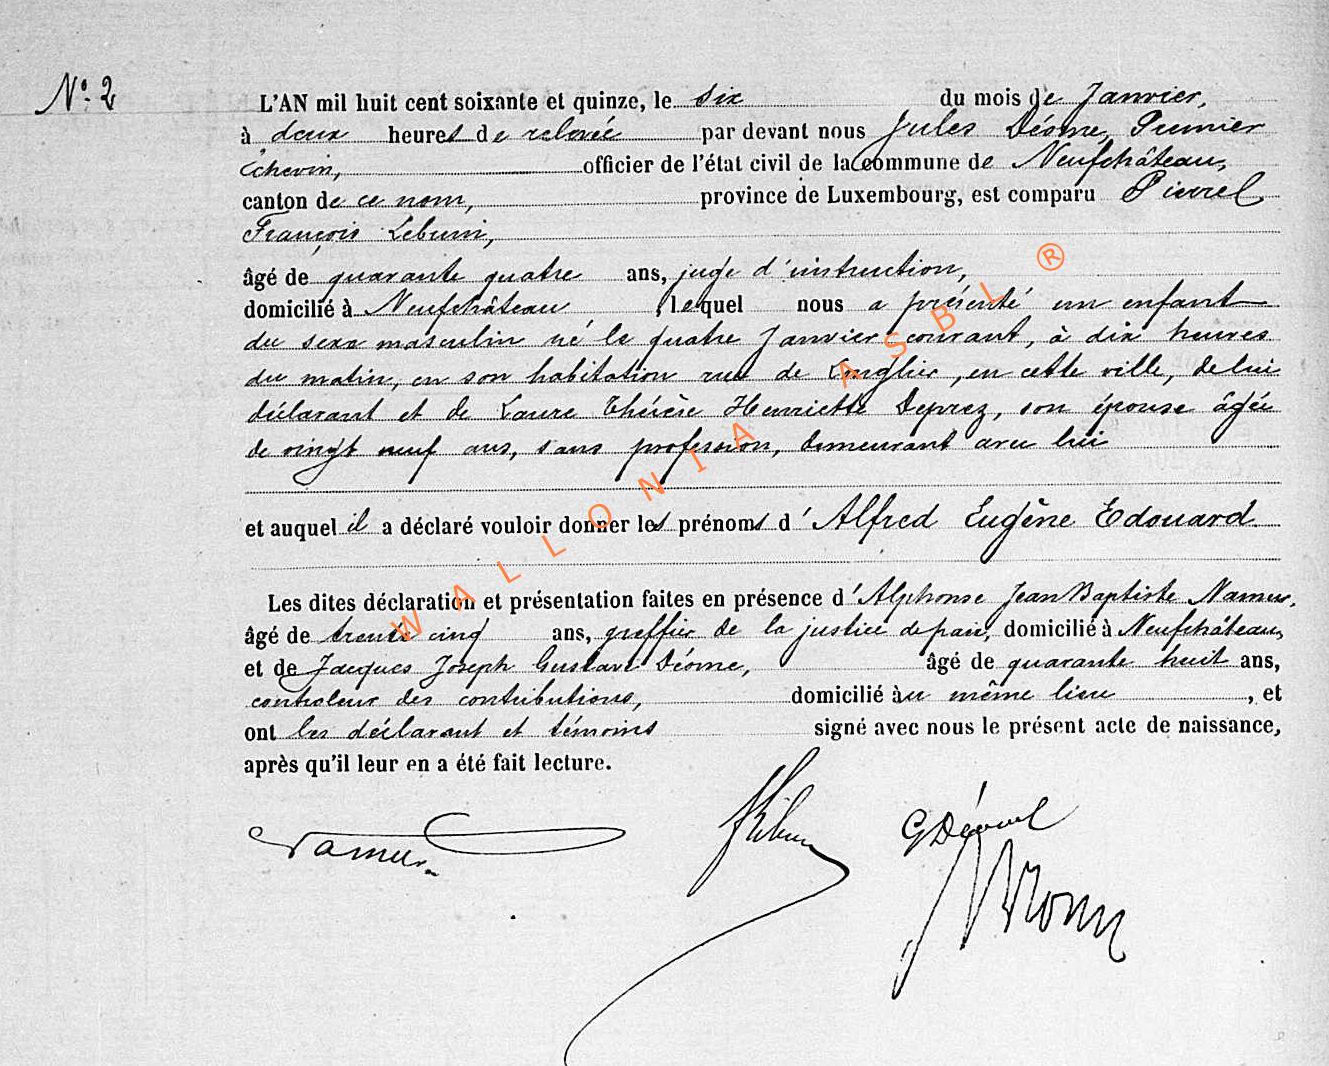 N° 2
L'AN mil huit cent soixante et quinze, le six du mois de Janvier,
à deux heures de relevée par devant nous Jules Déome, Premier
Echevin, officier de l'état civil de la commune de Neufchâteau,
canton de ce nom, province de Luxembourg, est comparu Pierre
François Lebrun,
âgé de quarante quatre ans, juge d'instruction,
domicilié à Neufchâteau, lequel nous a présenté un enfant
du sexe masculin né le quatre Janvier courant, à dix heures
du matin, en son habitation rue de Longlier, en cette ville, de lui
déclarant et de Laure Thérèse Henriette Deprez, son épouse âgée
de vingt neuf ans, sans profession, demeurant avec lui
et auquel il a déclaré vouloir donner les prénoms d'Alfred Eugène Edouard
Les dites déclaration et présentation faites en présence d'Alphonse Jean Baptiste Namur,
âgé de trente cinq ans, greffier de la justice de paix, domicilié à Neufchâteau,
et de Jacques Joseph Gustave Déome, âgé de quarante huit ans,
controleur des contributions, domicilié au même lieu, et
ont les déclarant et témoins signé avec nous le présent acte de naissance,
après qu'il leur en a été fait lecture.
Namur
WALLONIA ASBL ®